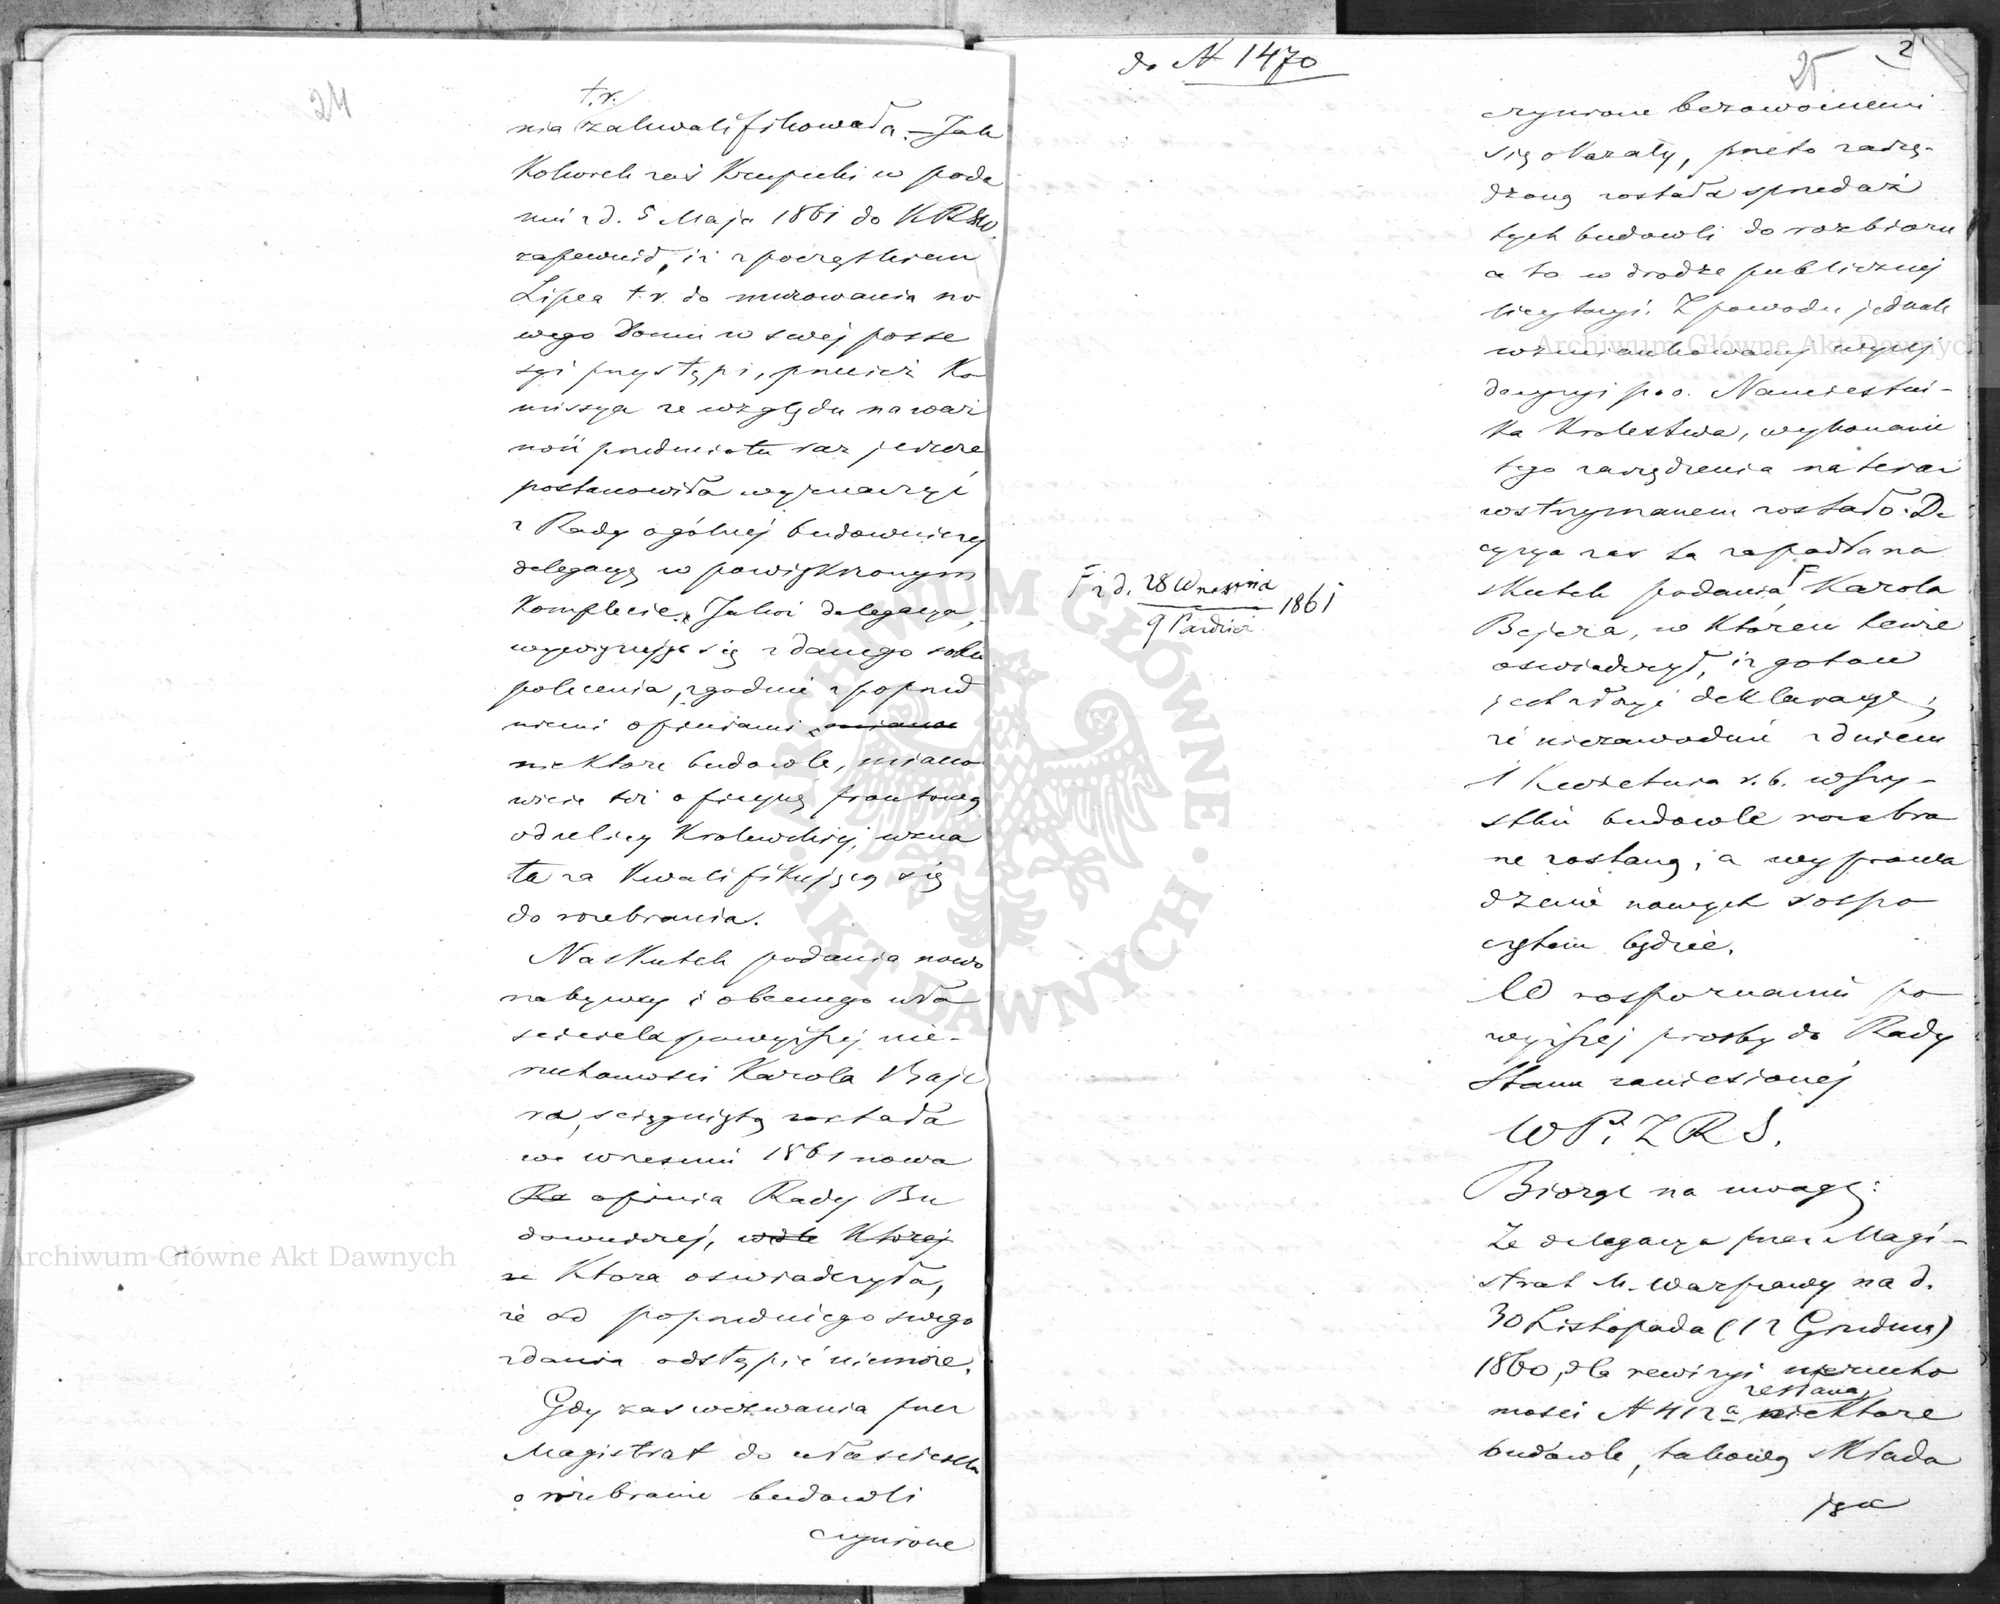 24
t. r.
nia zakwalifikowała. – Jak
Kolwiek zaś Krupecki w poda
niu z d. 5 Maja 1861 do KRSW.
zapewnił, iż z początkiem
Lipca t. r. do murowania no
wego Domu w swéj posse
syi przystąpi, przecież Ko
missya ze względu na waż
ność przedmiotu raz jeszcze
postanowiła wyznaczyć
z Rady ogólnéj budowniczej
delegacyę w powiększonym
Komplecie. Jakoż delegacya,
wywiązując się z danego sobie
polecenia, zgodnie z poprzed
niemi opiniami
niektóre budowle, miano
wicie też oficynę frontową
od ulicy Królewskiej, uzna
ła za kwalifikującą się
do rozebrania.
Na skutek podania nowo
nabywcy i obecnego wła
ściciela powyższej nie-
ruchomości Karola Baje
ra, ściągniętą została
we wrześniu 1861 nowa
Ra opinia Rady Bu
downiczej, wedle Której
że Która oświadczyła,
że od poprzedniego swego
zdania odstąpić niemoże.
Gdy zaś wezwania przez
Magistrat do właściciela
o rozebranie budowli
czynione
do N 1470
25
2
czynione bezowocnemi
się okazały, przeto zarzą-
dzoną została sprzedaż
tych budowli do rozbioru
a to w drodze publicznej
licytacyi. Z powodu jednak
wzmiankowanej wyżej
decyzyi p. o. Namiestni-
ka Królestwa, wykonanie
tego zarządzenia na teraz
wstrzymanem zostało. De
cyzya zaś ta zapadła na
skutek podania Γ Karola
Γ z d. 28 Września / 9 Paździer 1861
Bejera, w którem tenże
oświadczył, iż gotow
jest złożyć deklaracyę,
że niezawodnie z dniem
1 Kwietnia r. b. wszy-
stkie budowle rozebra
ne zostaną, a wyprowa
dzenie nowych rozpo
czętem będzie.
W rozpoznaniu po
wyższej prośby do Rady
Stanu zaniesionéj
WP. Z R S.
Biorąc na uwagę:
Że delegacya przez Magi-
strat M. Warszawy na d.
30 Listopada (12 Grudnia)
1860, dla rewizyi nierucho
zesłana
mości N 412a niektóre
budowle, takową składa
jąca
Archiwum Główne Akt Dawnych
Archiwum Główne Akt Dawnych
ARCHIWUM GŁÓWNE · AKT DAWNYCH ·